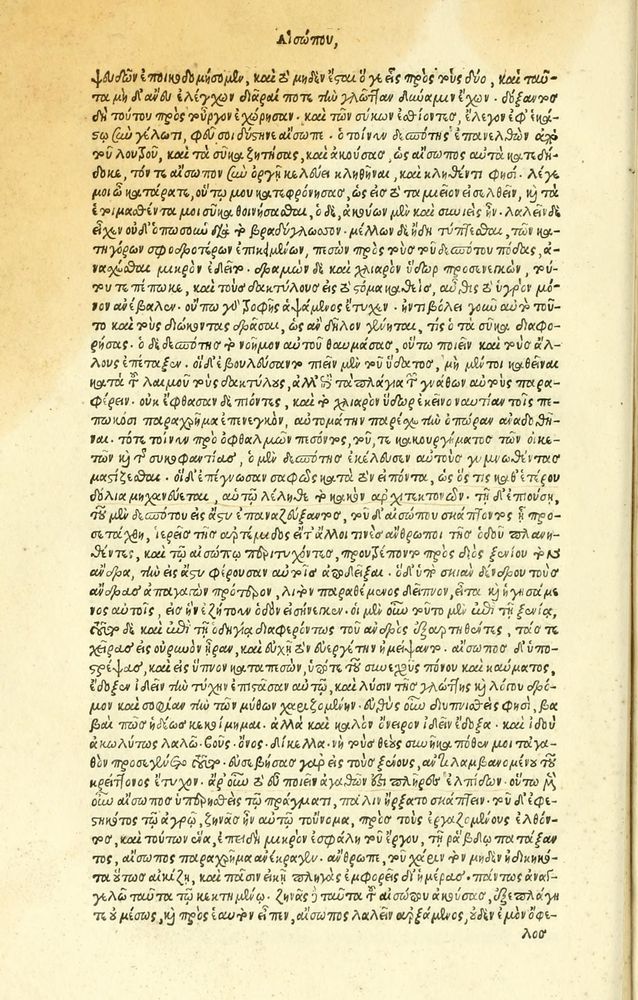 Αἰσώπου,
ψευδῶν ἐποικοδομήσομεν, καὶ οὐ μηδὲν ἔσται ὅγε εἷς πρὸς τοὺς δύο, καὶ ταῦ-
τα μὴ δ' ἄνευ ἐλέγχων διᾶραί ποτε τὴν γλῶτταν δυνάμενος ἔχων. δόξαντος
δὴ τούτου πρὸς τοὖργον ἐχώρησαν. καὶ τῶν σύκων ἐσθίοντες, ἔλεγον ἐφ' ἑκά-
στῳ σὺν γέλωτι, φεῦ σοι δύστηνε αἴσωπε. ὁ τοίνυν δεσπότης ἐπανελθὼν ἀπὸ
τοῦ λουτροῦ, καὶ τὰ σῦκα ζητήσας, καὶ ἀκούσας, ὡς αἴσωπος αὐτὰ κατεδή-
δοκε, τόν τε αἴσωπον σὺν ὀργῇ κελεύει κληθῆναι, καὶ κληθέντι φησί. λέγε
μοι ὦ κατάρατε, οὕτω μου κατεφρόνησας, ὡς εἰς τὸ ταμιεῖον εἰσελθεῖν, καὶ τὰ
ἑτοιμασθέντα μοι σῦκα θοινήσασθαι, ὁ δὲ, ἀκούων μὲν καὶ συνιεὶς ἦν. λαλεῖν δὲ
εἶχεν οὐδ' ὁπωσοῦν διὰ τὸ βραδύγλωσσον. μέλλων δὲ ἤδη τύπτεσθαι, τῶν κα-
τηγόρων σφοδροτέρων ἐπικειμένων, πεσὼν πρὸς τοὺς τοῦ δεσπότου πόδας, ἀ-
νασχέσθαι μικρὸν ἐδεῖτο. δραμὼν δὲ καὶ χλιαρὸν ὕδωρ προσενεγκὼν, τοῦ-
τό τε πέπωκε, καὶ τοὺς δακτύλους εἰς τὸ στόμα καθεὶς, αὖθις τὸ ὑγρὸν μό-
νον ἀνέβαλεν. οὔπω γὰρ τροφῆς ἁψάμενος ἔτυχεν. ἠντιβόλει γοῦν αὐτὸ τοῦ-
το καὶ τοὺς διώκοντας δρᾶσαι, ὡς ἂν δῆλον γένηται, τίς ὁ τὰ σῦκα διαφο-
ρήσας. ὁ δὲ δεσπότης τὸ νοῆμον αὐτοῦ θαυμάσας, οὕτω ποιεῖν καὶ τοὺς ἄλ-
λους ἐπέταξεν. οἱ δ' ἐβουλεύσαντο πιεῖν μὲν τοῦ ὕδατος, μὴ μέντοι καθεῖναι
κατὰ τοῦ λαιμοῦ τοὺς δακτύλους, ἀλλ' ἐς τὰ πλάγια τῶν γνάθων αὐτοὺς παρα-
φέρειν. οὐκ ἔφθασαν δὲ πιόντες, καὶ τὸ χλιαρὸν ὕδωρ ἐκεῖνο ναυτίαν τοῖς πε-
πωκόσι παραχρῆμα ἐπενεγκὸν, αὐτομάτην παρέσχε τὴν ὀπώραν ἀναδοθῆ-
ναι. τότε τοίνυν πρὸ ὀφθαλμῶν πεσόντος, τοῦ, τε κακουργήματος τῶν οἰκε-
τῶν καὶ τῆς συκοφαντίας, ὁ μὲν δεσπότης ἐκέλευσεν αὐτοὺς γυμνωθέντας
μαστίζεσθαι. οἱ δ' ἐπέγνωσαν σαφῶς κατὰ τὸν εἰπόντα, ὡς ὅς τις καθ' ἑτέρου
δόλια μηχανεύεται, αὐτῷ λέληθε τὸ κακὸν ἀρχιτεκτονῶν. τῇ δ' ἐπιούσῃ,
τοῦ μὲν δεσπότου εἰς ἄστυ ἐπαναζεύξαντος, τοῦ δ' αἰσώπου σκάπτοντος ᾗ προ-
σετάχθη, ἱερεῖς τῆς ἀρτέμιδος εἴτ' ἄλλοι τινὲς ἄνθρωποι τῆς ὁδοῦ πλανη-
θέντες, καὶ τῷ αἰσώπῳ περιτυχόντες, προυτρέποντο πρὸς διὸς ξενίου τὸν
ἄνδρα, τὴν εἰς ἄστυ φέρουσαν αὐτοῖς ἀποδεῖξαι. ὁ δ' ὑπὸ σκιὰν δένδρου τοὺς
ἄνδρας ἀπαγαγὼν πρότερον, λιτὸν παραθέμενος δεῖπνον, εἶτα καὶ ἡγησάμε-
νος αὐτοῖς, εἰς ἣν ἐζήτουν ὁδὸν εἰσήνεγκεν. οἱ μὲν οὖν τοῦτο μὲν ἐπὶ τῇ ξενίᾳ,
τοῦτο δὲ καὶ ἐπὶ τῇ ὁδηγίᾳ διαφερόντως τοῦ ἀνδρὸς ἐξαρτηθέντες, τάς τε
χεῖρας εἰς οὐρανὸν ᾖραν, καὶ εὐχῇ τὸν εὐεργέτην ἠμείψαντο. αἴσωπος δ' ὑπο-
στρέψας, καὶ εἰς ὕπνον καταπεσὼν, ὑπό τε τοῦ συνεχοῦς πόνου καὶ καύματος,
ἔδοξεν ἰδεῖν τὴν τύχην ἐπιστᾶσαν αὐτῷ, καὶ λύσιν τῆς γλώττης καὶ λόγου δρό-
μον καὶ σοφίαν τὴν τῶν μύθων χαριζομένην. εὐθὺς οὖν διυπνισθεὶς φησί, βα
βαὶ πῶς ἡδέως κεκοίμημαι. ἀλλὰ καὶ καλὸν ὄνειρον ἰδεῖν ἔδοξα. καὶ ἰδοὺ
ἀκωλύτως λαλῶ. βοῦς. ὄνος. δίκελλα. νὴ τοὺς θεοὺς συνῆκα πόθεν μοι τἀγα-
θὸν προσεγένετο τοῦτο. εὐσεβήσας γὰρ εἰς τοὺς ξένους, ἀντιλαμβανομένου τοῦ
κρείττονος ἔτυχον. ἆρ' οὖν τὸ εὖ ποιεῖν ἀγαθῶν ἐστι πλῆρες ἐλπίδων. οὕτω μὲν
οὖν αἴσωπος ὑπερησθεὶς τῷ πράγματι, πάλιν ἤρξατο σκάπτειν. τοῦ δ' ἐφε-
στηκότος τῷ ἀγρῷ, ζηνᾶς ἦν αὐτῷ τοὔνομα, πρὸς τοὺς ἐργαζομένους ἐλθόν-
τος, καὶ τούτων ἕνα, ἐπειδὴ μικρὸν ἐσφάλη τοῦ ἔργου, τῇ ῥάβδῳ πατάξαν
τος, αἴσωπος παραχρῆμα ἀνέκραγεν. ἄνθρωπε, τοῦ χάριν τὸν μηδὲν ἠδικηκό-
τα οὕτως αἰκίζῃ, καὶ πᾶσιν εἰκῇ πληγὰς ἐμφορεῖς δι' ἡμέρας. πάντως ἀναγ-
γελῶ ταῦτα τῷ κεκτημένῳ. ζηνᾶς δὲ ταῦτα τοῦ αἰσώπου ἀκούσας, ἐξεπλάγη
τε οὐ μέσως, καὶ πρὸς ἑαυτὸν εἶπεν, αἴσωπος λαλεῖν ἀρξάμενος, οὐδὲν ἐμὸν ὄφε-
λος